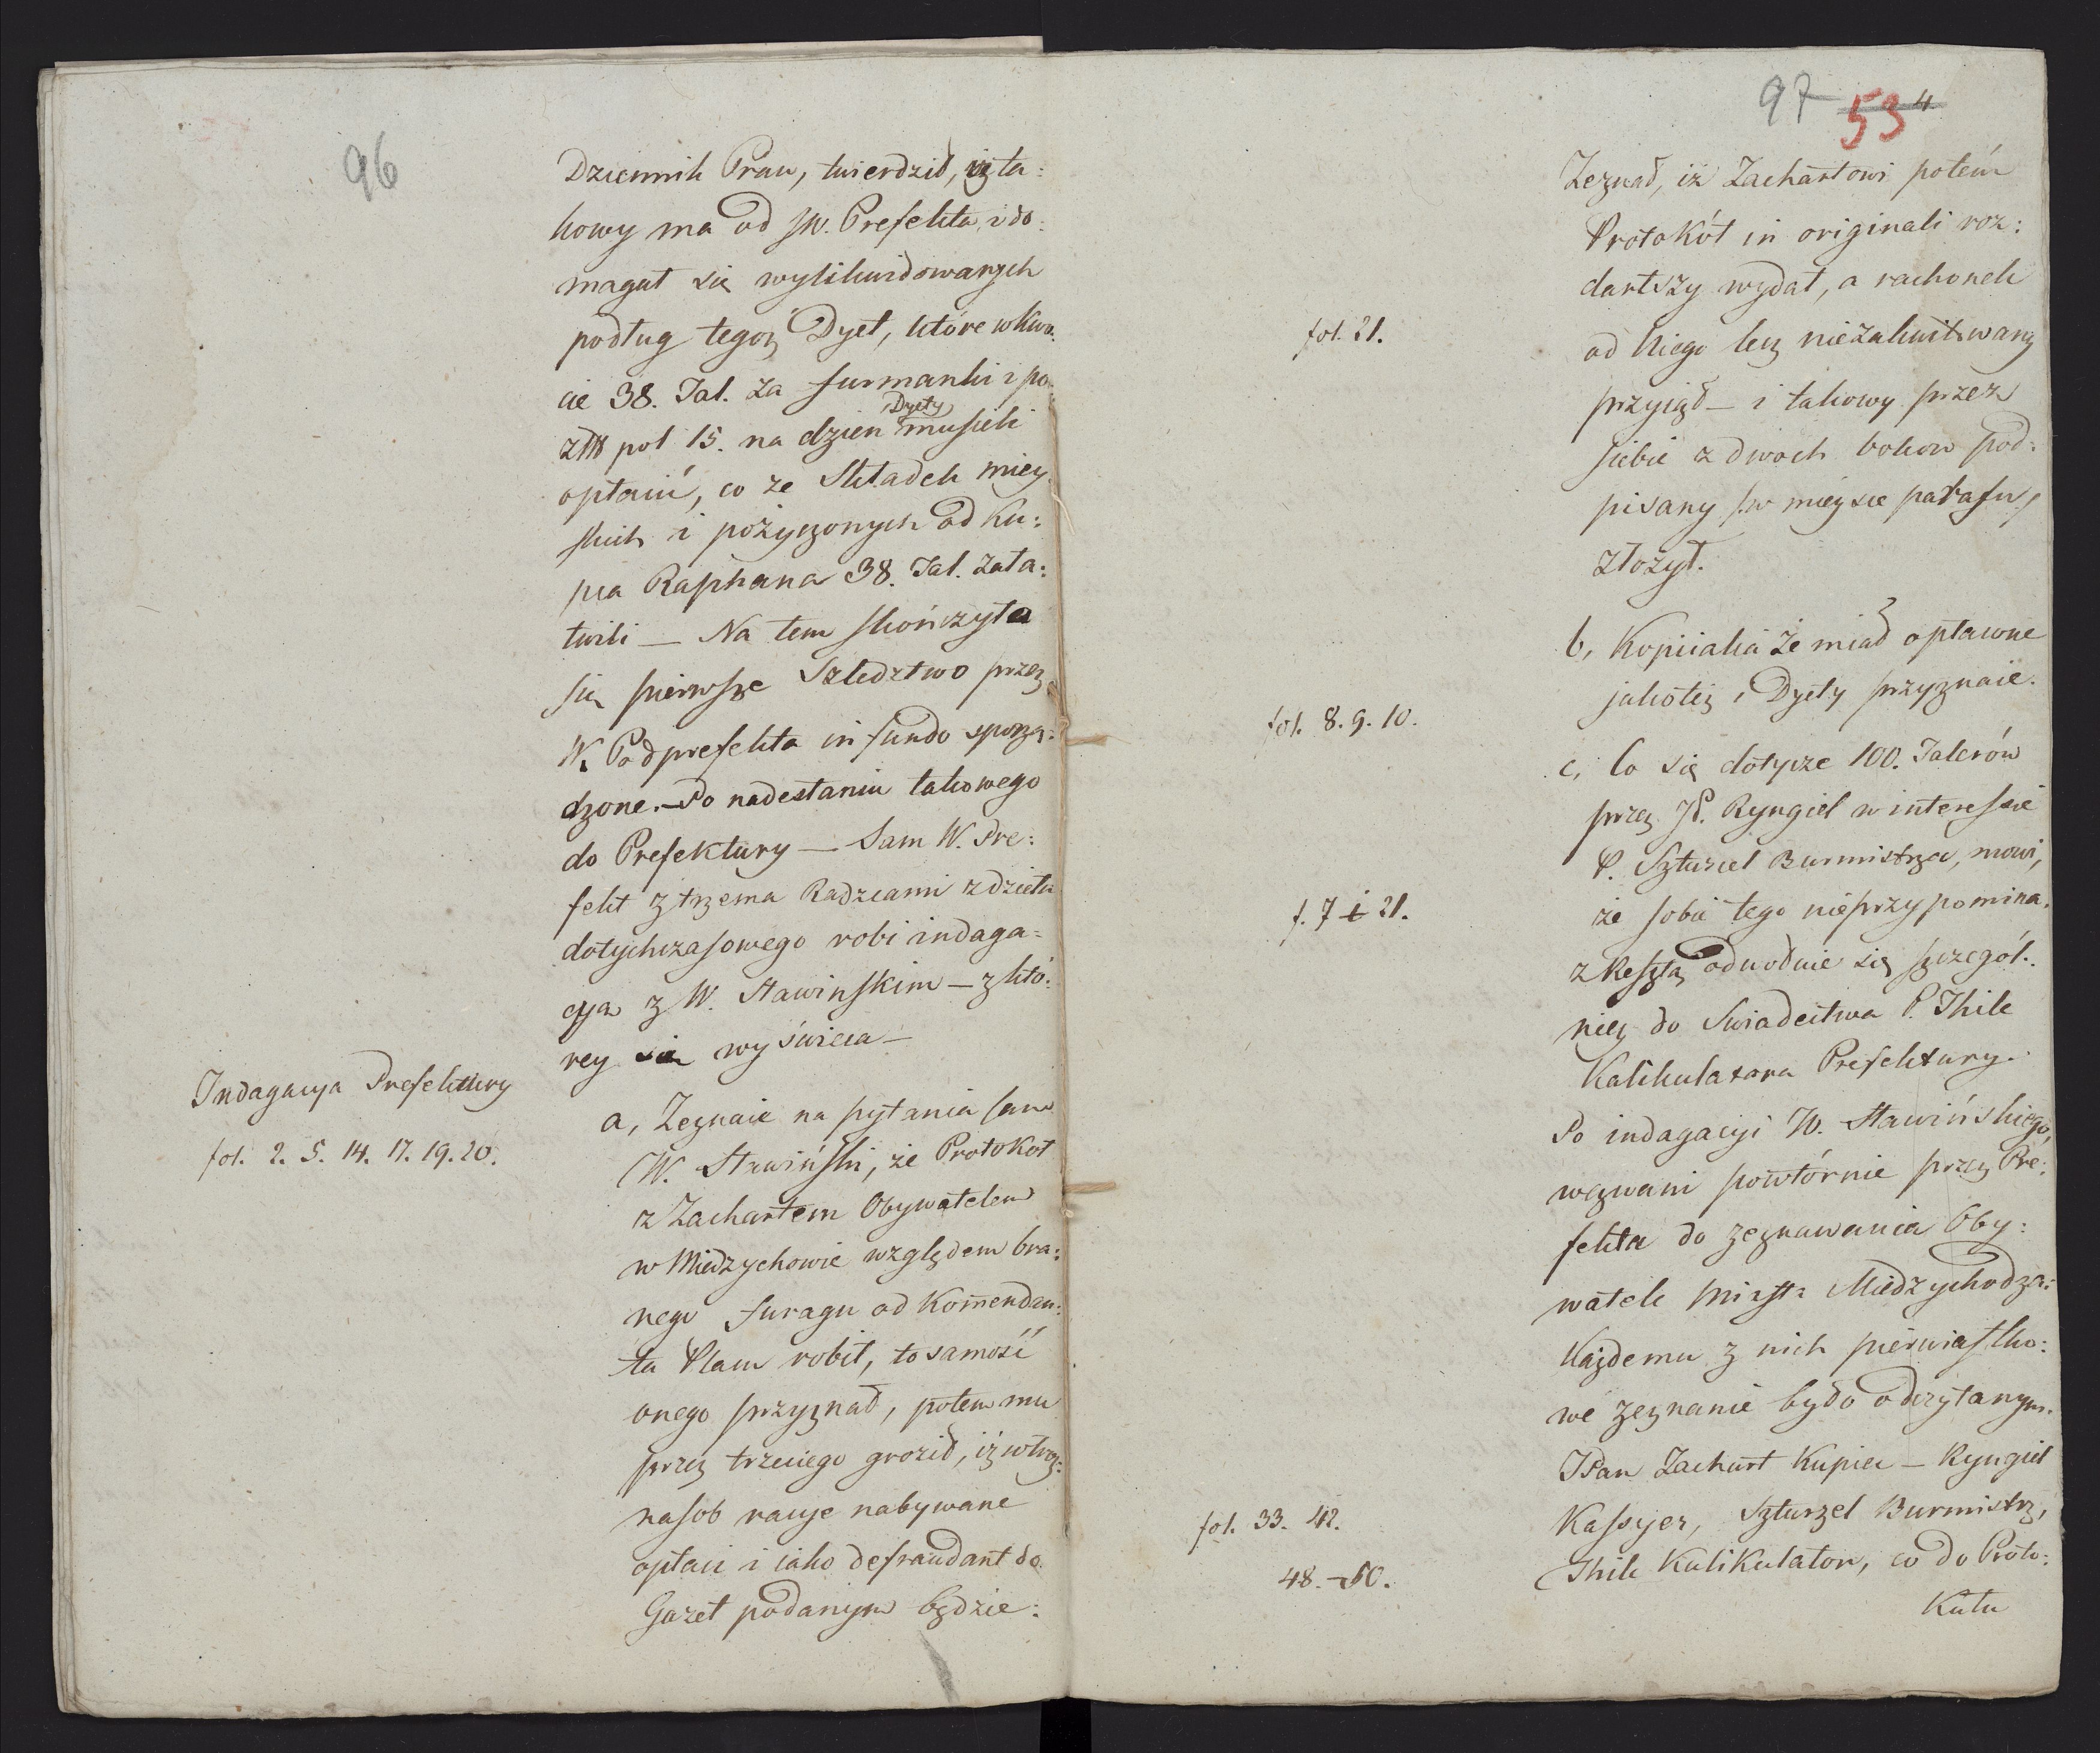 96
Dziennik Praw, twierdził, iż ta:
kowy ma od JW. Prefekta, i do:
magał się wylikwidowanych
podług tegoż Dyet, które w kwo:
cie 38. Tal. za furmanki i po
zł pol 15. na dzien Dyety musieli
opłacić, co ze Składek miey:
skich i pożyczonych od Ku:
pca Raphana 38. Tal. zała:
twili — Na tem skończyła
się pierwsze Szledztwo przez
W. Podprefekta in fundo sporzą:
dzone. — Po nadesłaniu takowego
do Prefektury — Sam W. Pre:
fekt z trzema Radzcami z dzieła
dotychczasowego robi indaga=
cyą z W. Stawinskim — z któ:
rey się wyświeca —
Indagacya Prefektury
fol. 2. 5. 14. 17. 19. 20.
a, Zeznaie na pytania sam
W. Stawiński, że Protokoł
z Zachartem Obywatelem
w Miedzychowie względem bra:
nego furagu od Komendan:
ta Placu robił, tosamość
onego przyznał, potem mu
przez trzeciego groził, iż wtroy:
nasob racye nabywane
opłaci i iako defraudant do
Gazet podanym będzie:
97 53 4.
Zeznał, iż Zachartowi potém
Protokół in originali roz:
dartszy wydał, a rachonek
od niego lecz niezakwitowany
fol. 21.
przyiął — i takowy przez
siebie z dwoch bokow pod:
pisany /:w mieysce parafu:/
złożył.
b, Kopiialia że miał opłacone
jakoteż i Dyety przyznaie.
fol. 8. 9. 10.
c, Co się dotycze 100. Talerów
przez JP. Ryngiel w interessie
P. Szturcel Burmistrza, mowi,
że sobie tego nieprzypomina,
f. 7 i 21.
z Resztą odwołuie się szczegól:
niey do Swiadectwa P. Thile
Kalikulatora Prefektury.
Po indagacyi W. Stawińskiego,
wezwani powtórnie przez Pre:
fekta do zeznawania Oby:
watele Miasta Miedzychodza:
Każdemu z nich pierwiastko:
we zeznanie było odczytanym.
JPan Zachart Kupiec — Ryngiel
Kassyer, Szturzel Burmistrz,
fol. 33. 42.
Thile Kalikulator, co do Proto:
48. — 50.
Kułu